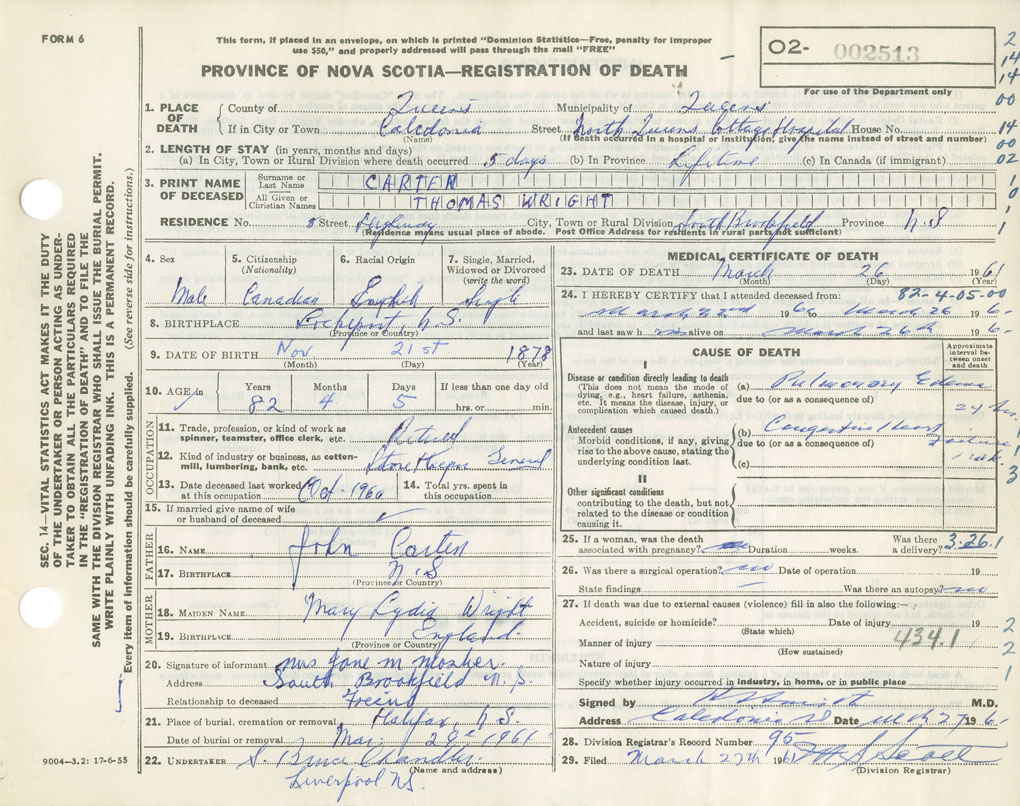 FORM 6
This form, if placed in an envelope, on which is printed "Dominion Statistics—Free, penalty for improper
use $50," and properly addressed will pass through the mail "FREE"
PROVINCE OF NOVA SCOTIA—REGISTRATION OF DEATH
O2- 002513
For use of the Department only
2
14
14
00
14
00
02
1
0
1
1. PLACE OF DEATH
County of Queens Municipality of Queens
If in City or Town Caledonia Street North Queens Cottage Hospital House No.
(Name) (If death occurred in a hospital or Institution, give the name instead of street and number)
2. LENGTH OF STAY (in years, months and days)
(a) In City, Town or Rural Division where death occurred 5 days (b) In Province Lifetime (c) In Canada (if immigrant)
3. PRINT NAME OF DECEASED
Surname or Last Name CARTEN
All Given or Christian Names THOMAS WRIGHT
RESIDENCE No. 8 Street Highway City, Town or Rural Division South Brookfield Province N.S
(Residence means usual place of abode. Post Office Address for residents in rural parts not sufficient)
4. Sex Male
5. Citizenship (Nationality) Canadian
6. Racial Origin English
7. Single, Married, Widowed or Divorced (write the word) Single
8. BIRTHPLACE N.S.
(Province or Country)
9. DATE OF BIRTH Nov 21st 1878
(Month) (Day) (Year)
10. AGE in Years 82 Months 4 Days 5 If less than one day old hrs. or min.
OCCUPATION
11. Trade, profession, or kind of work as spinner, teamster, office clerk, etc. Retired
12. Kind of industry or business, as cotton-mill, lumbering, bank, etc. Store Keeper General
13. Date deceased last worked at this occupation Oct-1960
14. Total yrs. spent in this occupation
15. If married give name of wife or husband of deceased
FATHER
16. NAME John Carten
17. BIRTHPLACE N.S
(Province or Country)
MOTHER
18. MAIDEN NAME Mary Lydia Wright
19. BIRTHPLACE England
(Province or Country)
20. Signature of informant Mrs Jane M Mosher
Address South Brookfield N.S.
Relationship to deceased Freind
21. Place of burial, cremation or removal Halifax, N.S.
Date of burial or removal Mar. 29th 1961
22. UNDERTAKER S. Bruce Chandler
(Name and address)
Liverpool NS.
9004—3.2: 17-6-55
MEDICAL CERTIFICATE OF DEATH
23. DATE OF DEATH March 26 1961
(Month) (Day)
24. I HEREBY CERTIFY that I attended deceased from: 82-4-05-00
March 22nd 196 to March 26 196
and last saw h im alive on March 26th 196
CAUSE OF DEATH
Approximate interval between onset and death
I
Disease or condition directly leading to death
(This does not mean the mode of dying, e.g., heart failure, asthenia, etc. It means the disease, injury, or complication which caused death.)
(a) Pulmonary Edema
due to (or as a consequence of)
24 hrs.
Antecedent causes
Morbid conditions, if any, giving rise to the above cause, stating the underlying condition last.
(b) Congestive Heart Failure
due to (or as a consequence of)
1 wk.
(c)
1
3
II
Other significant conditions
contributing to the death, but not related to the disease or condition causing it.
25. If a woman, was the death associated with pregnancy? Duration weeks. Was there a delivery? 3-26.1
26. Was there a surgical operation? no Date of operation 19
State findings Was there an autopsy? no
27. If death was due to external causes (violence) fill in also the following:—
Accident, suicide or homicide? Date of injury 19
(State which)
434.1
Manner of injury
(How sustained)
Nature of injury
Specify whether injury occurred in industry, in home, or in public place
2
2
1
Signed by Smith M.D.
Address Caledonia NS Date Mch 27 1961
28. Division Registrar's Record Number 95
29. Filed March 27th 1961
(Division Registrar)
SEC. 14—VITAL STATISTICS ACT MAKES IT THE DUTY
OF THE UNDERTAKER OR PERSON ACTING AS UNDERTAKER
TO OBTAIN ALL THE PARTICULARS REQUIRED
IN THE "REGISTRATION OF DEATH" AND TO FILE THE
SAME WITH THE DIVISION REGISTRAR WHO SHALL ISSUE THE BURIAL PERMIT.
WRITE PLAINLY WITH UNFADING INK. THIS IS A PERMANENT RECORD.
Every item of information should be carefully supplied. (See reverse side for instructions.)